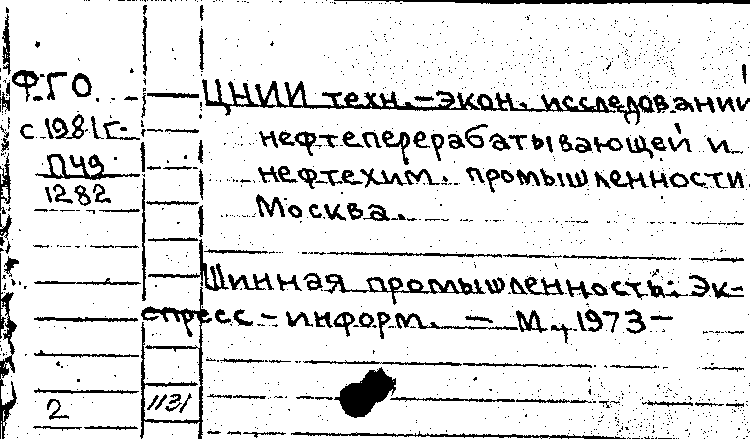 Ф.Г.О.
с 1981г.
П49
1282
ЦНИИ техн.-экон. исследовании
нефтеперерабатывающей и
нефтехим. промышленности
Москва.
Шинная промышленность: Эк-
спресс-информ. — М., 1973—
2
1131